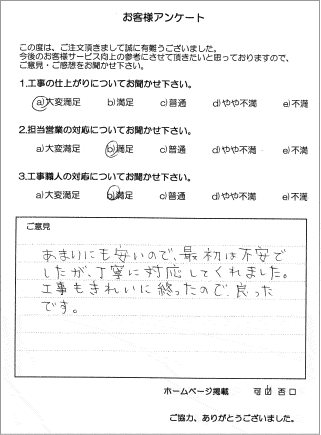 お客様アンケート
この度は、ご注文頂きまして誠に有難うございました。
今後のお客様サービス向上の参考にさせて頂きたいと思っておりますので、
ご意見・ご感想をお聞かせ下さい。
1.工事の仕上がりについてお聞かせ下さい。
a)大変満足 b)満足 c)普通 d)やや不満 e)不満
2.担当営業の対応についてお聞かせ下さい。
a)大変満足 b)満足 c)普通 d)やや不満 e)不満
3.工事職人の対応についてお聞かせ下さい。
a)大変満足 b)満足 c)普通 d)やや不満 e)不満
ご意見
あまりにも安いので、最初は不安で
したが、丁寧に対応してくれました。
工事もきれいに終ったので、良った
です。
ホームページ掲載 可 否
ご協力、ありがとうございました。